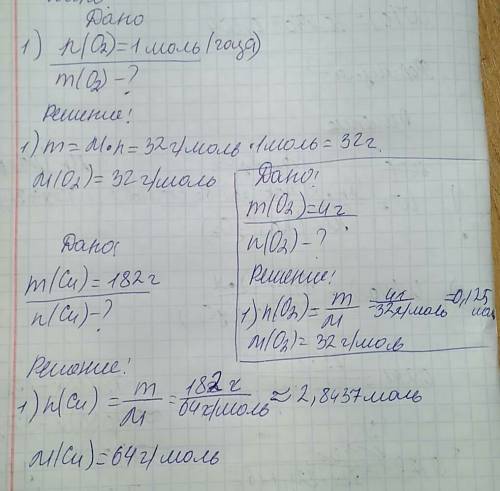 Дано
1) n(O2)=1моль (года)
m(O2)-?
Решение!
1) m=M•n=32г/моль•1моль=32г.
M(O2)=32г/моль
Дано!
m(O2)=4г
n(O2)-?
Решение!
1) n(O2)=m/M 4г/32г/моль=0,125 моль
M(O2)=32г/моль
Дано!
m(Cu)=182г
n(Cu)-?
Решение!
1) n(Cu)=m/M=182г/64г/моль≈2,8437моль
M(Cu)=64г/моль